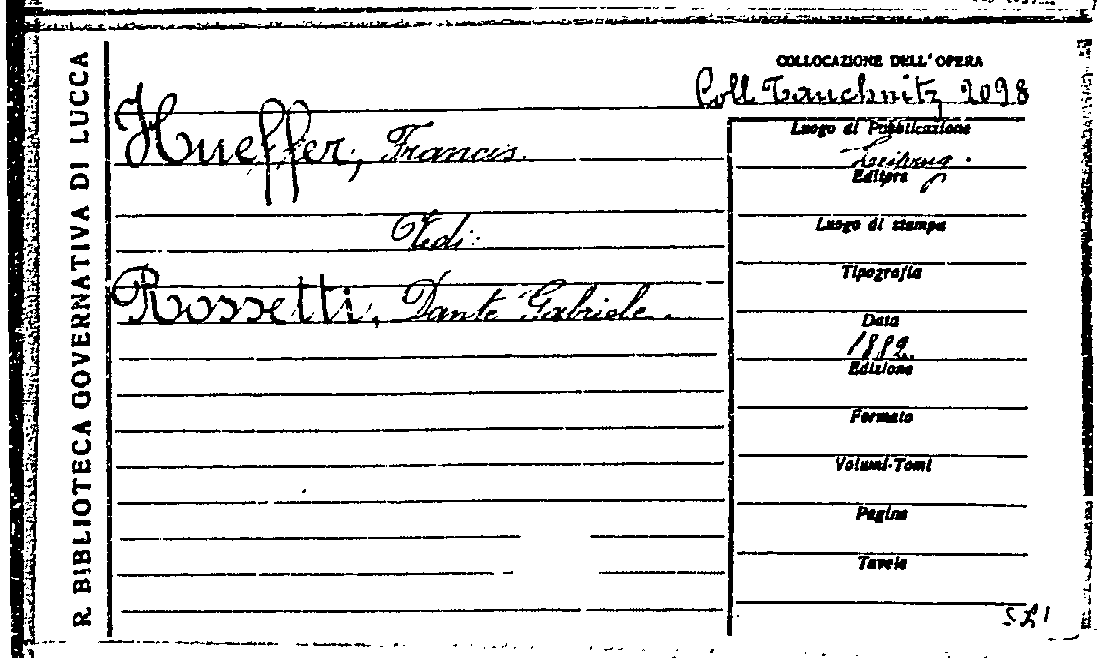 R. BIBLIOTECA GOVERNATIVA DI LUCCA
COLLOCAZIONE DELL'OPERA
Coll. Tauchnitz 2098
Hueffer, Francis.
Vedi:
Rossetti, Dante Gabriele.
Luogo di Pubblicazione
Leipzig.
Editore
Luogo di stampa
Tipografia
Data
1882
Edizione
Formato
Volumi-Tomi
Pagine
Tavole